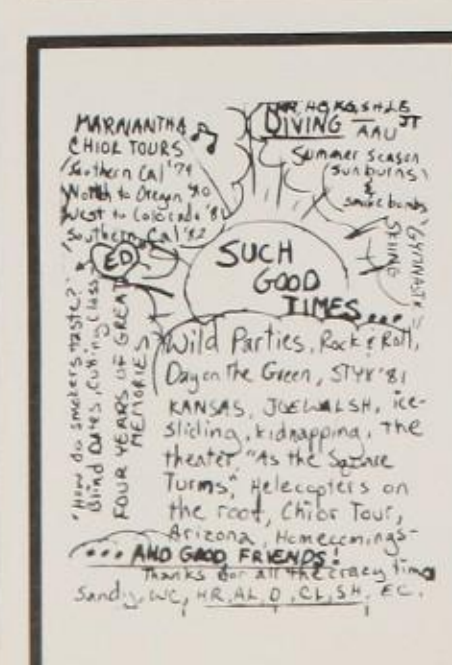 MARNANTHA
CHIOR TOURS
Southern Cal '79
North to Oregon '80
West to Colorado '81
Southern Cal '82
ED
HR, HB, KG, SH, LB
DIVING AAU JT
Summer season
sunburns
&
smoke bombs
SKIING
GYMNASTICS
SUCH
GOOD
TIMES...
"How do smokers taste?"
Blind Dates, Cutting Class
FOUR YEARS OF GREAT
MEMORIES
Wild Parties, Rock & Roll,
Day on The Green, STYX '81
KANSAS, JOE WALSH, ice-
sliding, kidnapping, The
theater, "As the Square
Turns", Helecopters on
the roof, Chior Tour,
Arizona, Homecomings-
... AND GOOD FRIENDS!
Thanks for all the crazy times
Sandy, WC, HR, AL, D, CL, SH, EC.